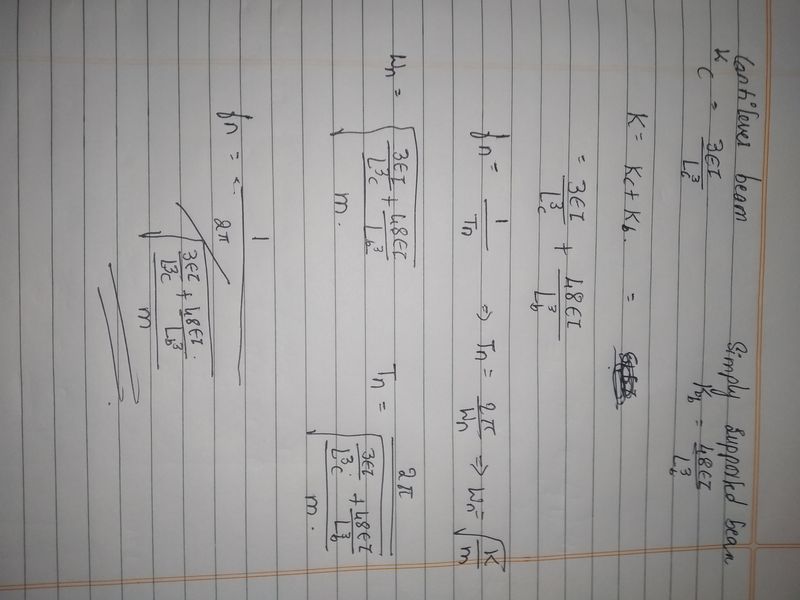 Cantilever beam Simply supported beam
Kc = 3EI/Lc³ Kb = 48EI/Lb³
K = Kc + Kb. =
= 3EI/Lc³ + 48EI/Lb³
fn = 1/Tn ⇒ Tn = 2π/Wn ⇒ Wn = √(K/m)
Wn = √((3EI/L³c + 48EI/Lb³)/m.) Tn = 2π/√((3EI/L³c + 48EI/Lb³)/m.)
fn = 1/(2π/√((3EI/L³c + 48EI/Lb³.)/m))